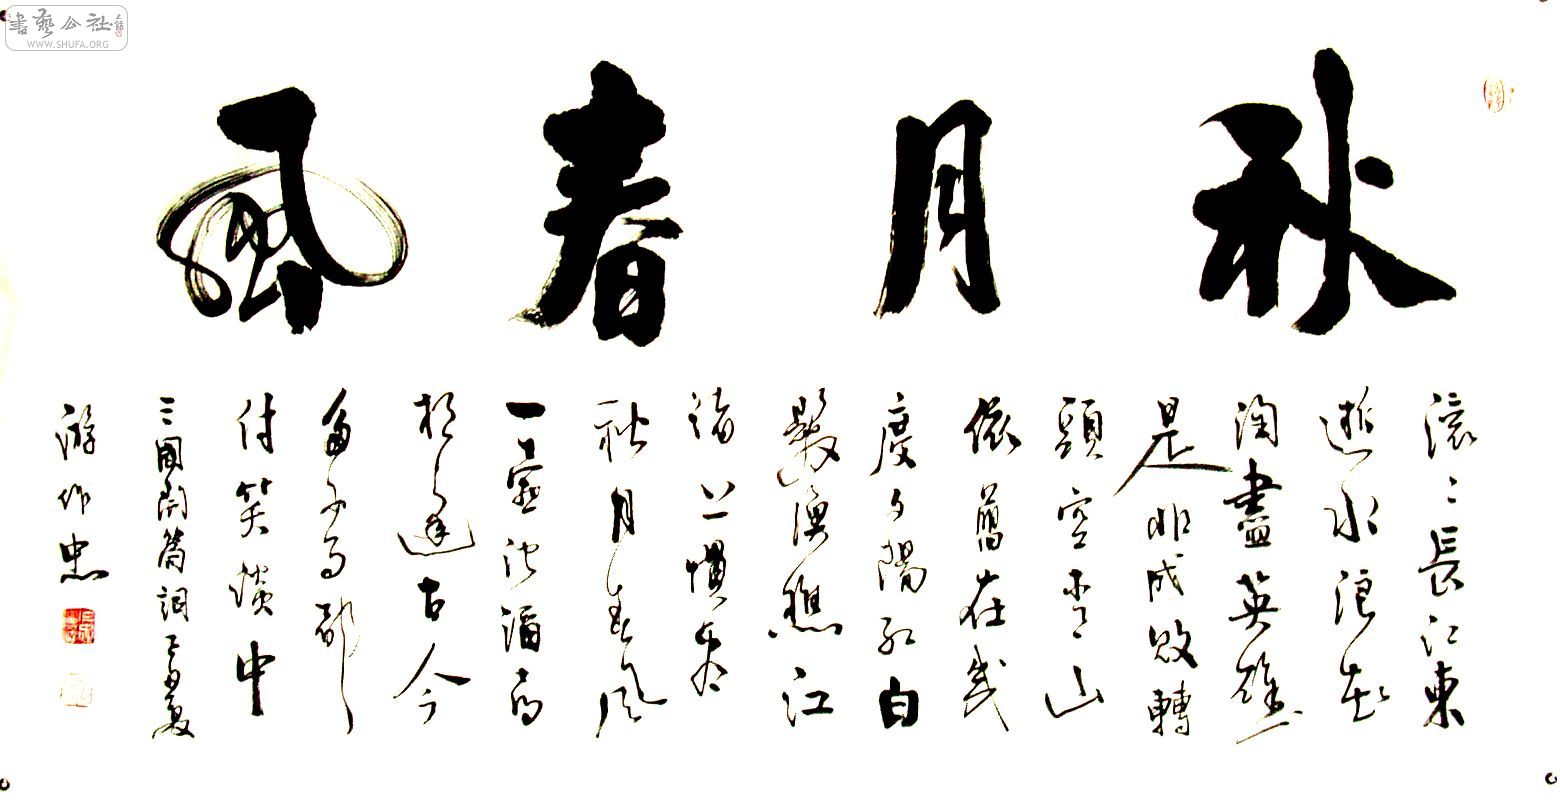 書藝公社
WWW.SHUFA.ORG
秋月春風
滚〻長江東
逝水浪花
淘盡英雄
是非成敗轉
頭空青山
依舊在幾
度夕陽紅白
髮漁樵江
渚上慣看
秋月春风
一壺濁酒喜
相逢古今
多少事都
付笑談中
三國開篇詞 夏
游作忠